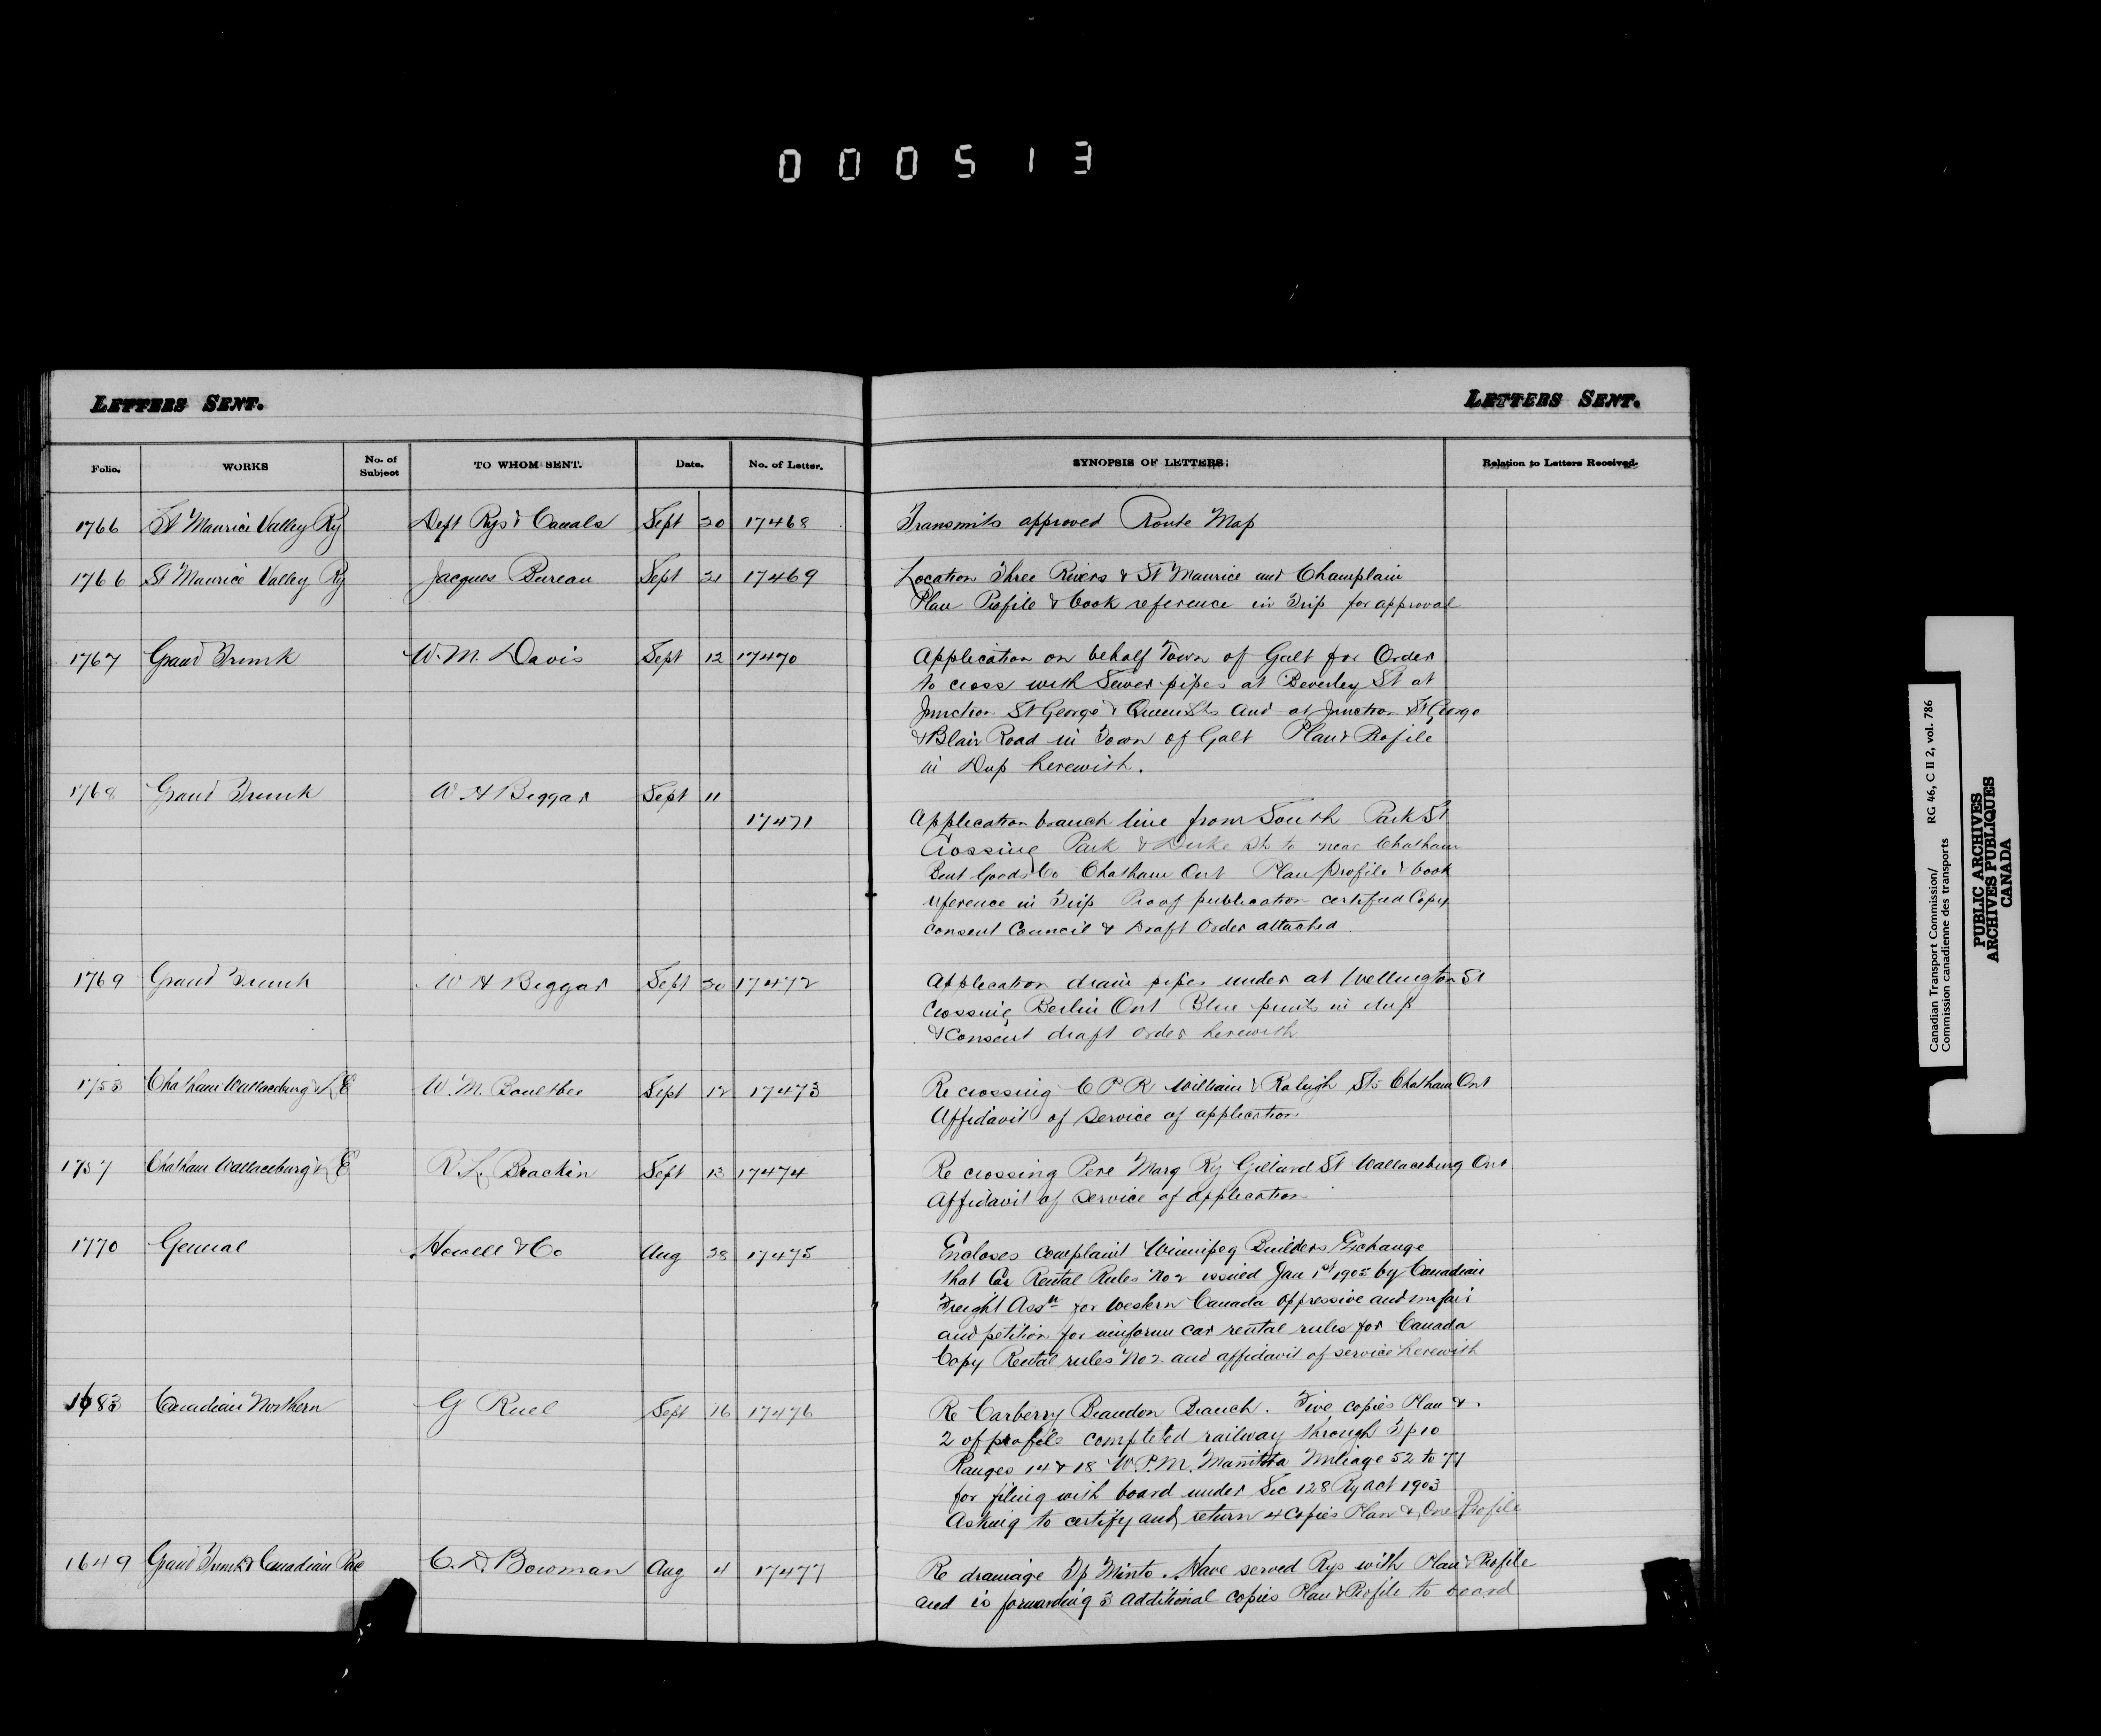 000513
LETTERS SENT.
LETTERS SENT.
Folio. WORKS No. of Subject TO WHOM SENT. Date. No. of Letter. SYNOPSIS OF LETTERS. Relation to Letters Received.
1766 St Maurice Valley Ry Dept Rys & Canals Sept 20 17468 Transmits approved Route Map
1766 St Maurice Valley Ry Jacques Bureau Sept 21 17469 Location Three Rivers & St Maurice and Champlain
Plan Profile & book reference in Trip for approval
1767 Grand Trunk W. M. Davis Sept 12 17470 Application on behalf Town of Galt for Order
to cross with Sewer pipes at Beverley St at
Junction St George & Queen Sts and at Junction St George
& Blair Road in Town of Galt Plan & Profile
in Dup herewith.
1768 Grand Trunk W H Biggar Sept 11
17471 Application branch line from South Park St
Crossing Park & Sts to near Chatham
Bent Goods Co Chatham Ont Plan profile & book
reference in Trip Proof publication certified Copy
consent Council & Draft Order attached
1769 Grand Trunk W H Biggar Sept 20 17472 Application drain pipes under at Wellington St
Crossing Berlin Ont Blue prints in dup
& Consent draft order herewith
1753 Chatham Wallaceburg & L E W. M. Boultbee Sept 12 17473 Re crossing C P R William & Raleigh Sts Chatham Ont
Affidavit of service of application
1757 Chatham Wallaceburg & L E R. L. Brackin Sept 13 17474 Re crossing Pere Marq Ry Gillard St Wallaceburg Ont
Affidavit of service of application
1770 General Howell & Co Aug 28 17475 Encloses complaint Winnipeg Builders Exchange
that Car Rental Rules No 2 issued Jan 1st 1905 by Canadian
Freight Assn for Western Canada oppressive and unfair
and petition for uniform car rental rules for Canada
Copy Rental rules No 2 and affidavit of service herewith
1683 Canadian Northern G Ruel Sept 16 17476 Re Carberry Brandon Branch. Five copies Plan &
2 of profile completed railway through Tp 10
Ranges 14 & 18 W.P.M. Manitoba Mileage 52 to 77
for filing with board under Sec 128 Ry act 1903
Asking to certify and return 4 Copies Plan & One Profile
1649 Grand Trunk & Canadian Pac C. D. Bowman Aug 4 17477 Re drainage Tp Minto. Have served Rys with Plan & Profile
and is forwarding 3 additional copies Plan & Profile to board
Canadian Transport Commission/ RG 46, C II 2, vol. 786
Commission canadienne des transports
PUBLIC ARCHIVES
ARCHIVES PUBLIQUES
CANADA